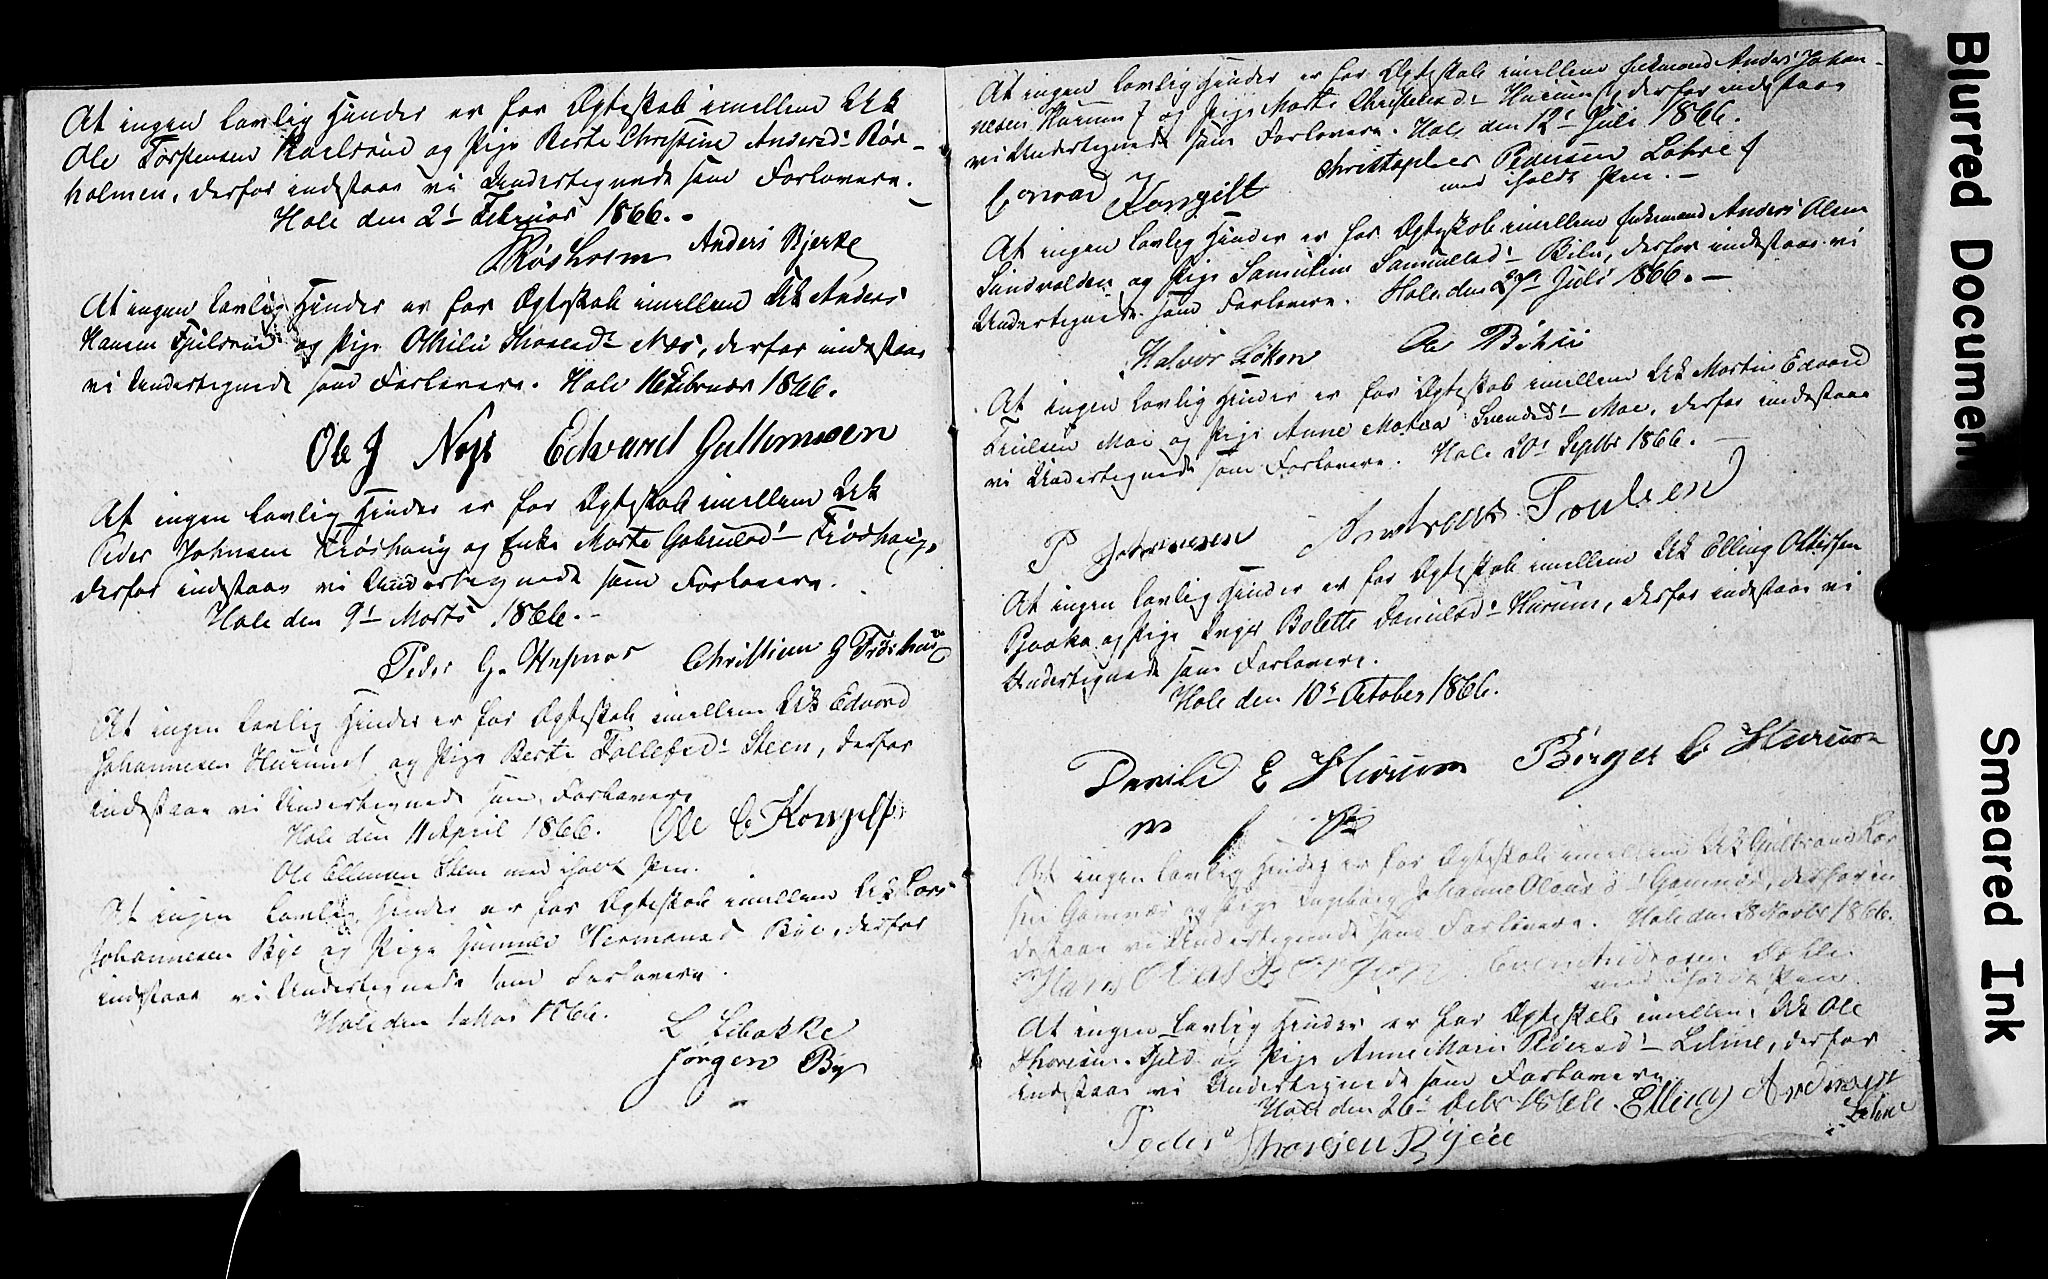 At ingen lovlig Hinder er for Ægteskab imellem Uk
Ole Torstensen og Pige Berte Christine Andersd: Rør-
holmen, derfor indestaae vi Undertegnede som Forlovere.
Hole den 2' Februar 1866.
Røsholm Anders Bjerke
At ingen lovlig Hinder er for Ægteskab imellem Uk Anders
Hansen og Pige Othilie Næs, derfor indestaae
vi Undertegnede som Forlovere. Hole 16 Februar 1866.
Ole J Næss Edvard Gulbrnsen
At ingen lovlig Hinder er for Ægteskab imellem Uk
Peder Johnsen Frøshaug og Enke Marte Gabrielsd: Frøshaug,
derfor indestaae vi Undertegnede som Forlovere.
Hole den 9' Marts 1866.
Peder G. Christian G Frøshaug
At ingen lovlig Hinder er for Ægteskab imellem Uk Edvard
Johannesen Hurum og Pige Berte Tollefsd: Steen, derfor
indestaae vi Undertegnede som Forlovere
Hole den 11 April 1866. Ole C Kongelf
Ole Ellensen Steen med iholdt Pen.
At ingen lovlig Hinder er for Ægteskab imellem Uk Lars
Johannesen Bye og Pige Gunnor Hermansd Bye, derfor
indestaae vi Undertegnede som Forlovere.
Hole den Mai 1866.
L Libakke
Jørgen By
At ingen lovlig Hinder er for Ægteskab imellem Anders Johan-
nesen Hurum og Pige Marte Christensd: Hurum, derfor indestaae
vi Undertegnede som Forlovere. Hole den 12' Juli 1866.
Conrad Kongelf Christopher Pedersen Løhre
med iholdt Pen.
At ingen lovlig Hinder er for Ægteskab imellem Anders Olsen
Sundvolden og Pige Samueline Samuelsd: Bili, derfor indestaae vi
Undertegnede som Forlovere. Hole den 27' Juli 1866.
Halvor Løken Bili
At ingen lovlig Hinder er for Ægteskab imellem Uk Martin Edvard
Moe og Pige Anne Svendsd: Moe, derfor indestaae
vi Undertegnede som Forlovere. Hole 20' Septbr 1866.
P Andreas Poulsen
At ingen lovlig Hinder er for Ægteskab imellem Uk Elling
og Pige Inger Bolette Danielsd: Hurum, derfor indestaae vi
Undertegnede som Forlovere.
Hole den 10' October 1866.
Daniel E Hurum Børger C Hurum
m f P
At ingen lovlig Hinder er for Ægteskab imellem Uk Gulbrand Lar-
sen Gomnæs og Pige Ingeborg Johanne Olausd: Gomnæs, derfor in-
destaae vi Undertegnede som Forlovere. Hole den 28 Novbr 1866.
Hans
med iholdt Pen.
At ingen lovlig Hinder er for Ægteskab imellem Uk Ole
Thoresen Fjeld og Pige Anne Marie Lehne, derfor
indestaae vi Undertegnede som Forlovere.
Hole den 26' Decbr 1866. Elling Andersen
Lehne
Peder Thoresen Bjerke
Blurred Document
Smeared Ink